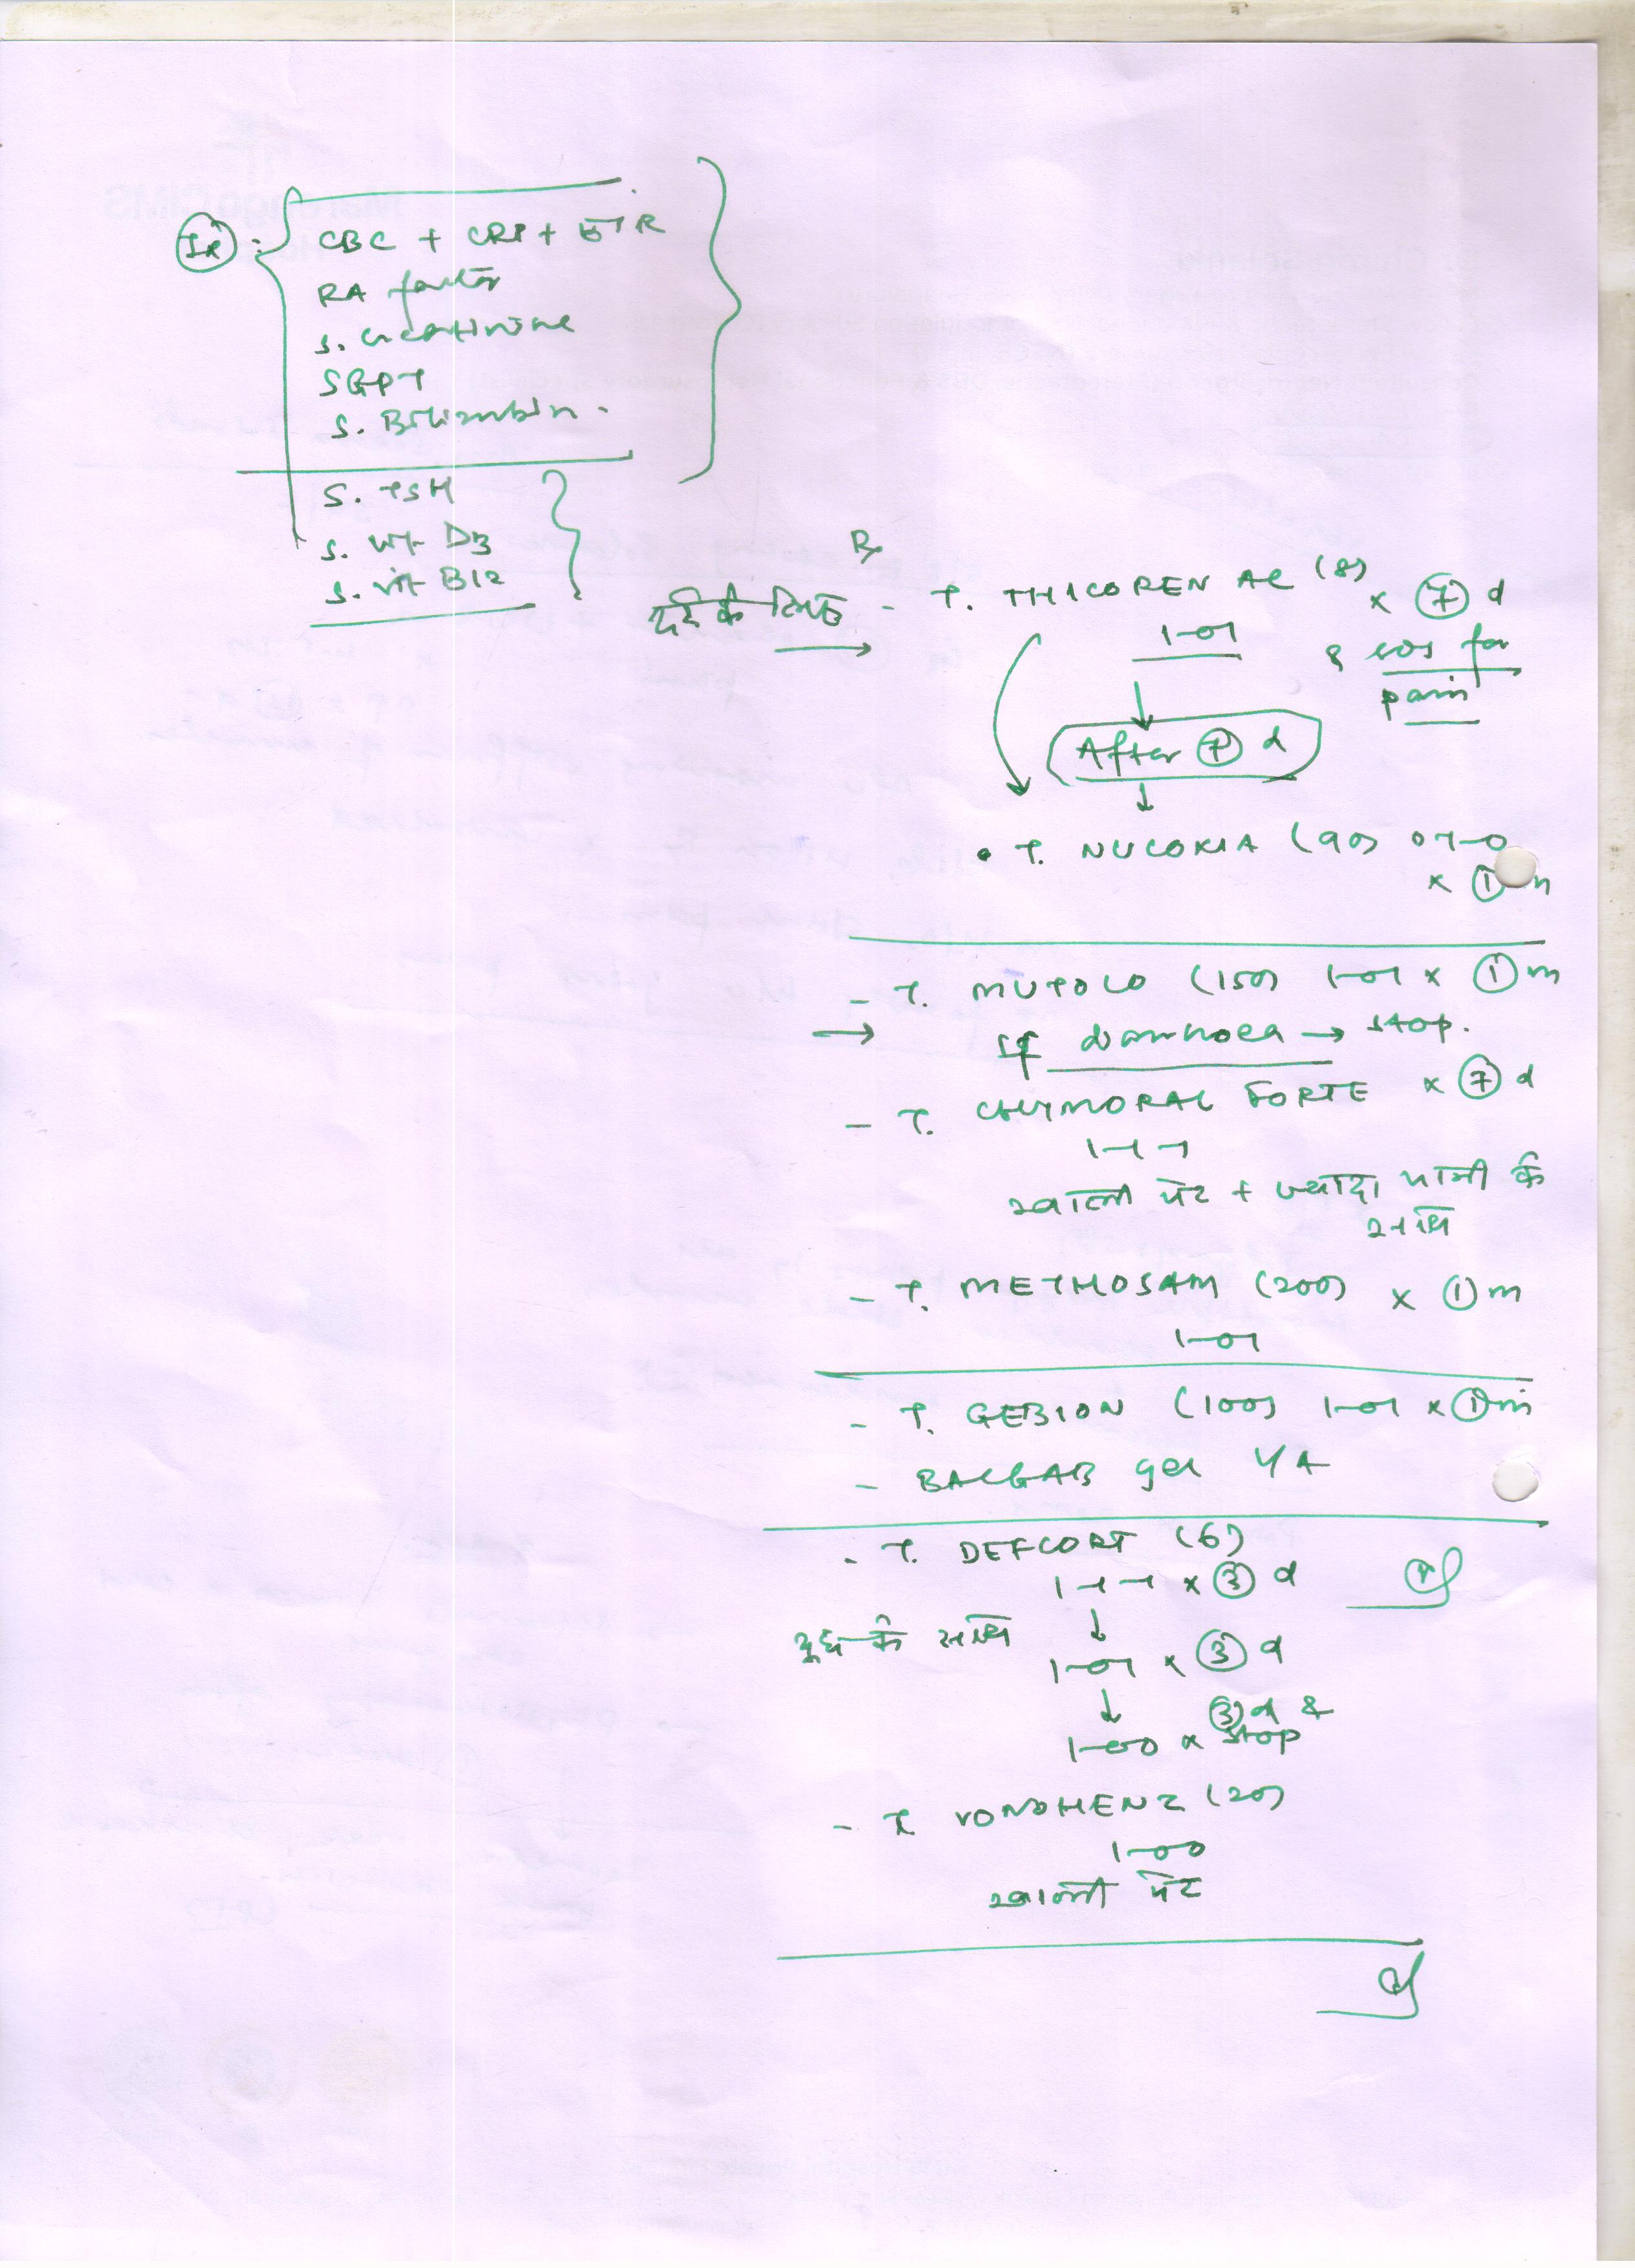 Ix :
CBC + CRP + ESR
RA factor
S. creatinine
SGPT
S. Bilirubin.
S. TSH
S. vit D3
S. vit B12
Rx
दर्द के लिए - T. THICOREN AC (8) x 7 d
1-0-1 & sos for
pain
After 7 d
• T. NUCOXIA (90) 0-1-0
x 1 m
- T. MUTOLO (150) 1-0-1 x 1 m
→ If diarrhoea → stop.
- T. CHYMORAL FORTE x 7 d
1-1-1
खाली पेट + ज्यादा पानी के
साथ
- T. METHOSAM (200) x 1 m
1-0-1
- T. GEBION (100) 1-0-1 x 1 m
- BACGAB gel L/A
- T. DEFCORT (6)
1-1-1 x 3 d
↓
दूध के साथ
1-0-1 x 3 d
↓
1-0-0 x 3 d &
stop
- T. VONOHENZ (20)
1-0-0
खाली पेट